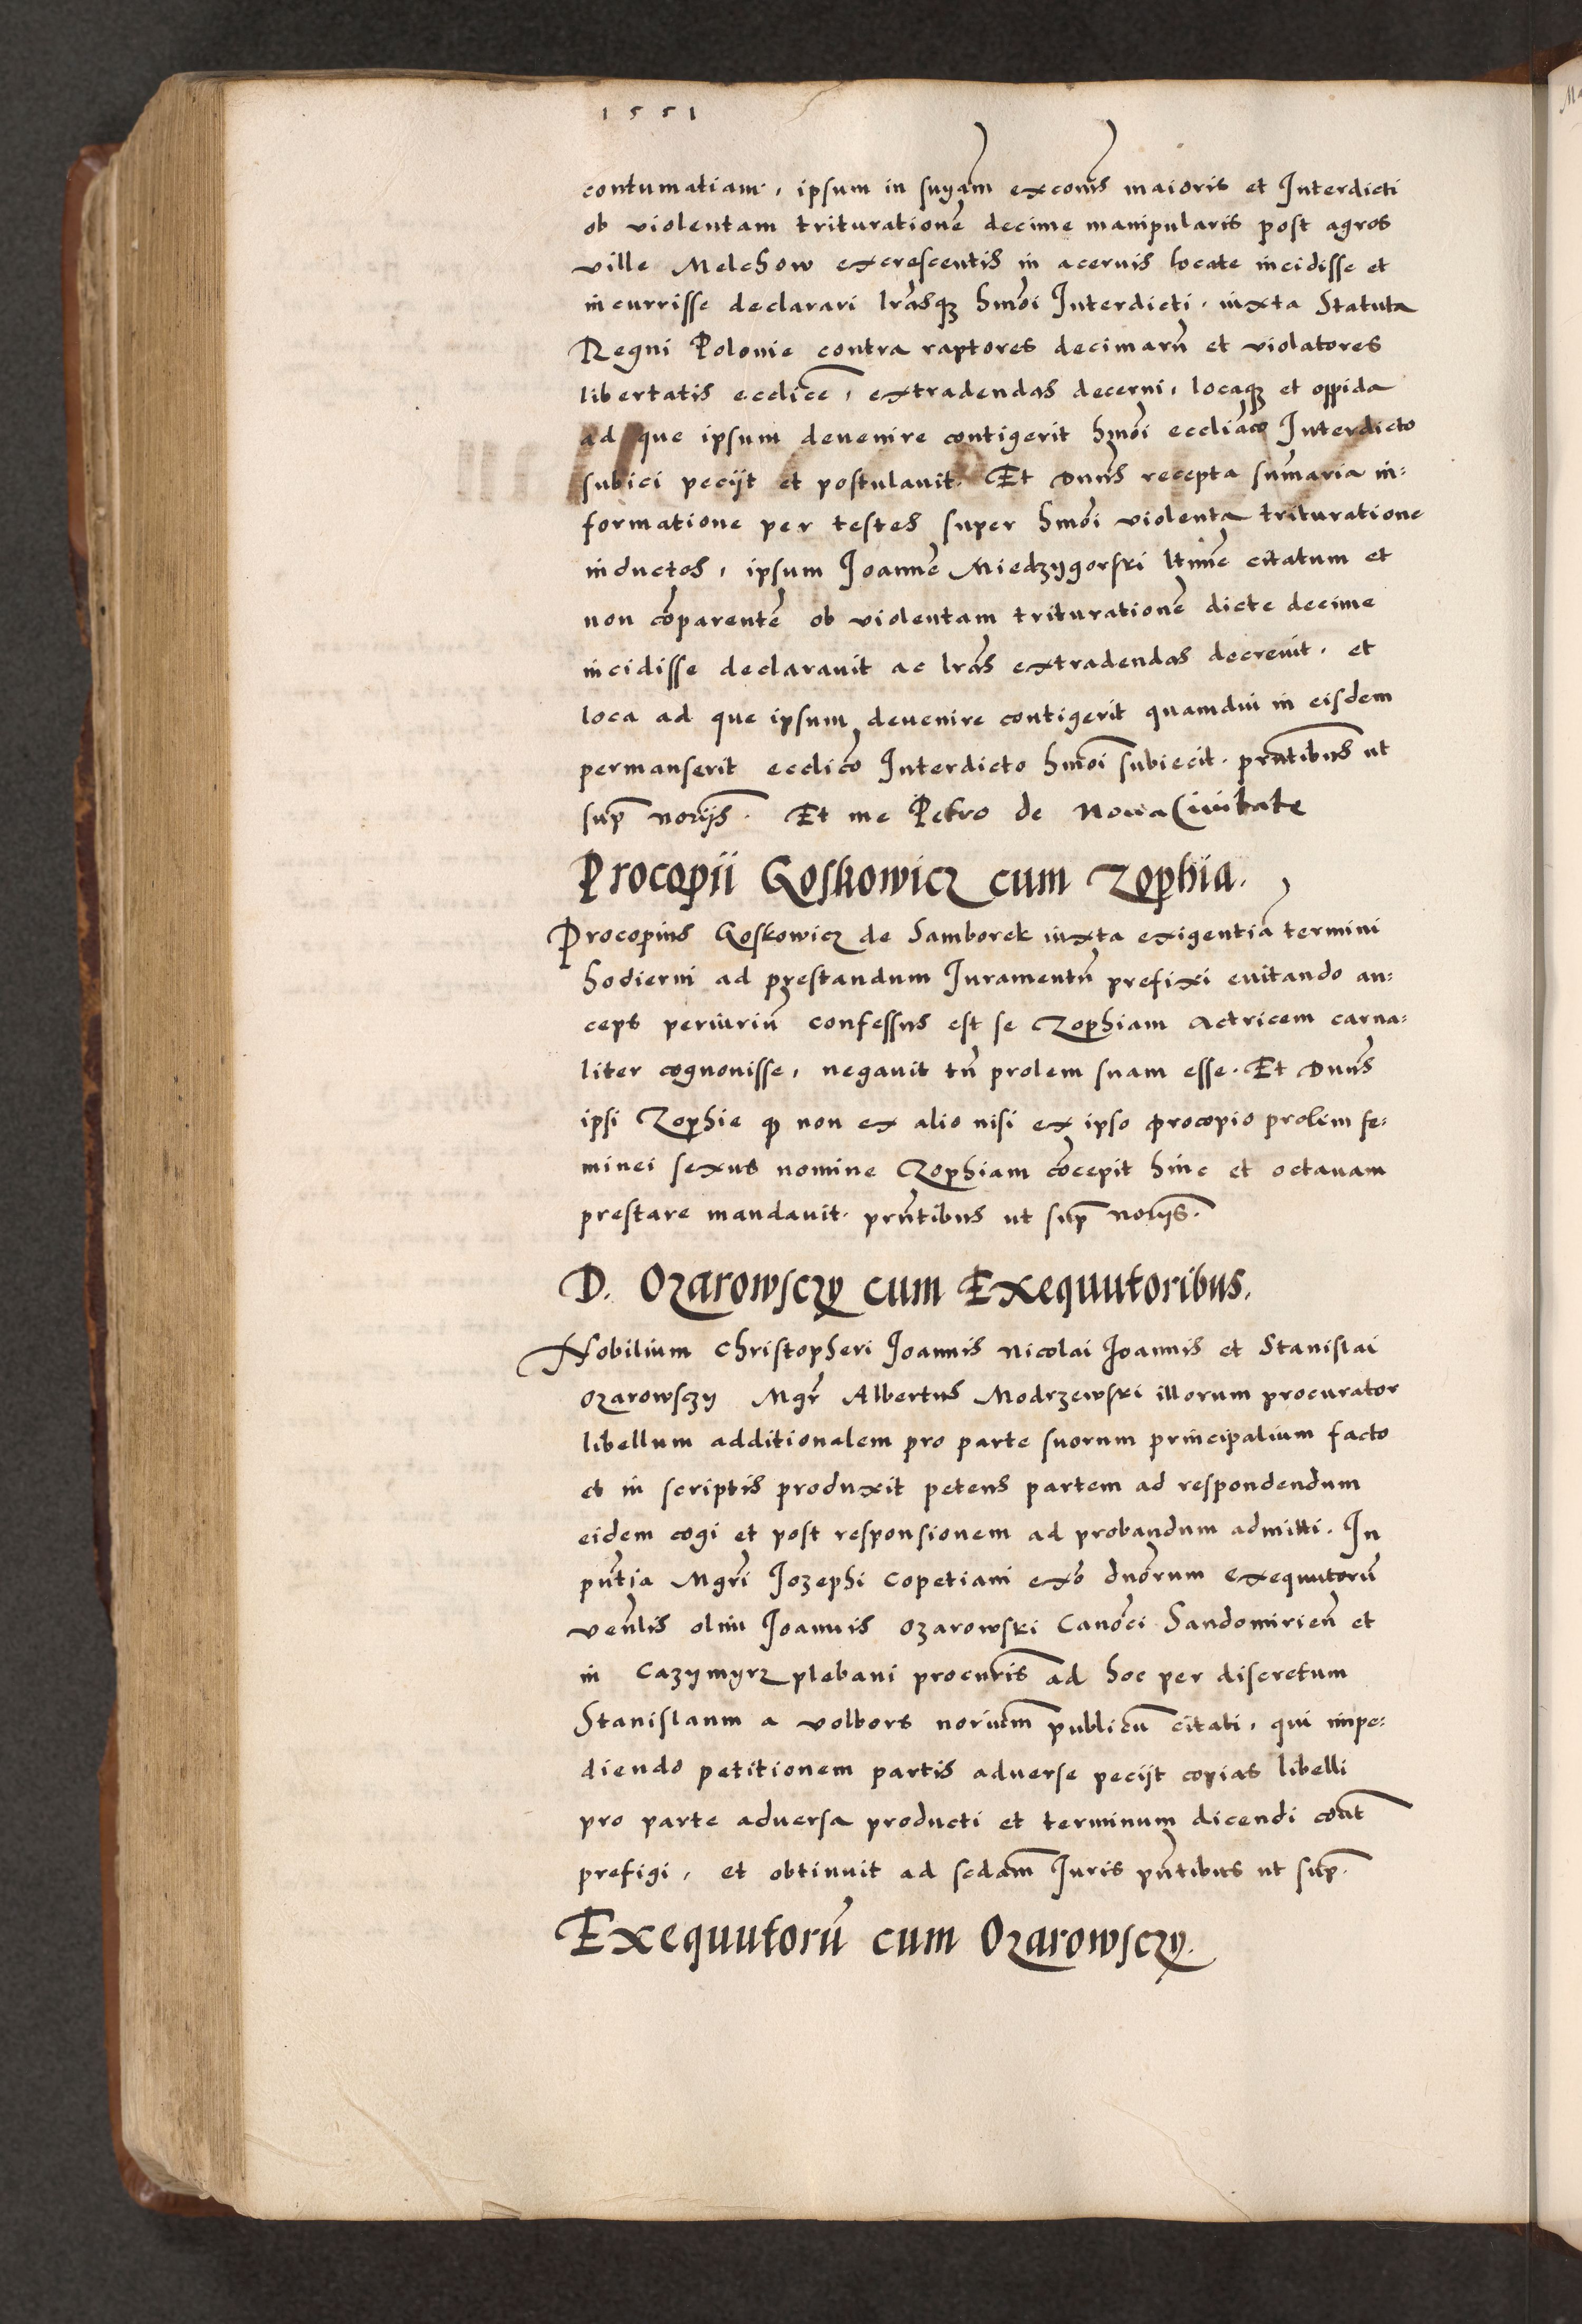 1551
contumatiam, ipsum in snyam̄ excoīs maioris et Interdicti
ob violentam trituratione̅ decime manipularis post agros
ville Melchow excrescentis in aceruis locate incidisse et
incurrisse declarari lrāsq₃ hmōi Interdicti. iuxta Statuta
Regni Polonie contra raptores decimarū et violatores
libertatis eccliēe, extradendas decerni, locaq₃ et oppida
ad que ipsum deuenire contigerit hmōi eccliāco Interdicto
subici pecijt et postulauit. Et Dnūs recepta sum̄aria in=
formatione per testes super hmōi violenta trituratione
inductos, ipsum Joanne̅ Miedzygorski ltiīme citatum et
non co̅parente̅ ob violentam trituratione̅ dicte decime
incidisse declarauit ac lrās extradendas decreuit. et
loca ad que ipsum deuenire contigerit quamdiu in eisdem
permanserit ecclīco Interdicto hmōi subiecit. prn̄tibus ut
sup̄ norījs. Et me Petro de Noua Ciuitate
Procopii Goskowicz cum Zophia.
Procopius Goskowicz de Samborek iuxta exigentia̅ termini
hodierni ad prestandum Juramentū prefixi euitando an=
ceps periuriū confessus est se Zophiam Actricem carna=
liter cognouisse, negauit tn̄ prolem suam esse. Et Dnūs
ipsi Zophie q̄ non ex alio nisi ex ipso procopio prolem fe=
minei sexus nomine Zophiam co̅cepit hinc et octauam
prestare mandauit. prn̄tibus ut sup̄ norījs.
D. Ozarowsczy cum Exequutoribus.
Nobilium Christopheri Joannis Nicolai Joannis et Stanislai
Ozarowsczy Mgr̄ Albertus Modrzewski illorum procurator
libellum additionalem pro parte suorum principalium facto
et in scriptis produxit petens partem ad respondendum
eidem cogi et post responsionem ad probandum admitti. In
pn̄tia Mgrī Jozephi Copetiani exō dnōrum exequutorū
venl̄is olim Joannis Ozarowski Canōci Sandomirien̄ et
in Cazymyrz plebani procurīs ad hoc per discretum
Stanislaum a volbors noriūm publicū citati, qui impe=
diendo petitionem partis aduerse pecijt copias libelli
pro parte aduersa producti et terminum dicendi cont̄
prefigi, et obtinuit ad sedam̄ Juris pn̄tibus ut sup̄.
Exequutorū cum Ozarowsczy.